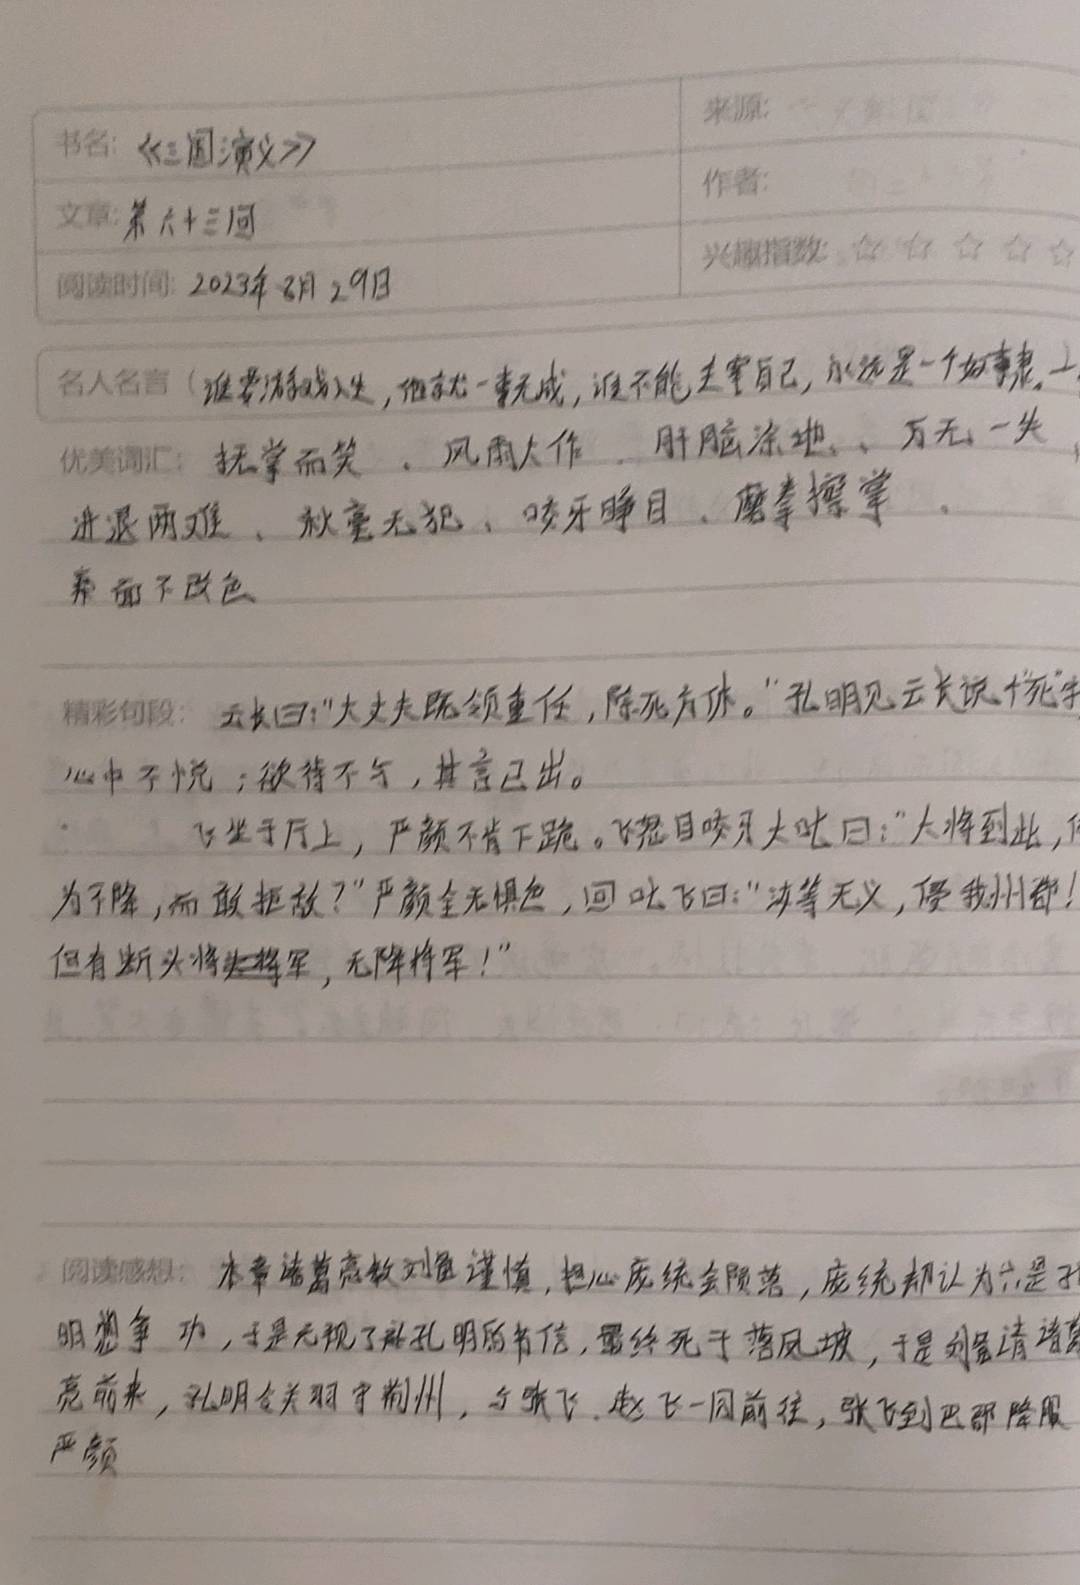 书名: 《三国演义》
来源:
文章: 第六十三回
作者:
阅读时间: 2023年8月29日
兴趣指数: ☆ ☆ ☆ ☆ ☆
名人名言（谁要游戏人生，他就一事无成，谁不能主宰自己，永远是一个奴隶。
优美词汇: 抚掌而笑 、风雨大作 、肝脑涂地、、万无一失
进退两难 、秋毫无犯 、咬牙睁目 、磨拳擦掌 、
面不改色
精彩句段: 云长曰:“大丈夫既领重任，除死方休。”孔明见云长说个“死”字
心中不悦；欲待不与，其言已出。
飞坐于厅上，严颜不肯下跪。飞怒目咬牙大叱曰:“大将到此，何
为不降，而敢拒敌？”严颜全无惧色，回叱飞曰:“汝等无义，侵我州郡！
但有断头将军，无降将军！”
阅读感想: 本章诸葛亮教刘备谨慎，担心庞统会陨落，庞统却认为是孔
明想争功，于是无视了孔明的书信，最终死于落凤坡，于是刘备请诸葛
亮前来，孔明令关羽守荆州，与张飞、赵飞一同前往，张飞到巴郡降服
严颜